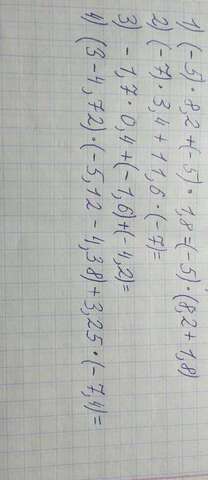 1) (-5) · 8,2 + (-5) · 1,8 = (-5) · (8,2 + 1,8)
2) (-7) · 3,4 + 11,6 · (-7) =
3) -1,7 · 0,4 + (-1,6) + (-4,2) =
4) (3 - 4,72) · (-5,12 - 4,38) + 3,25 · (-7,4) =